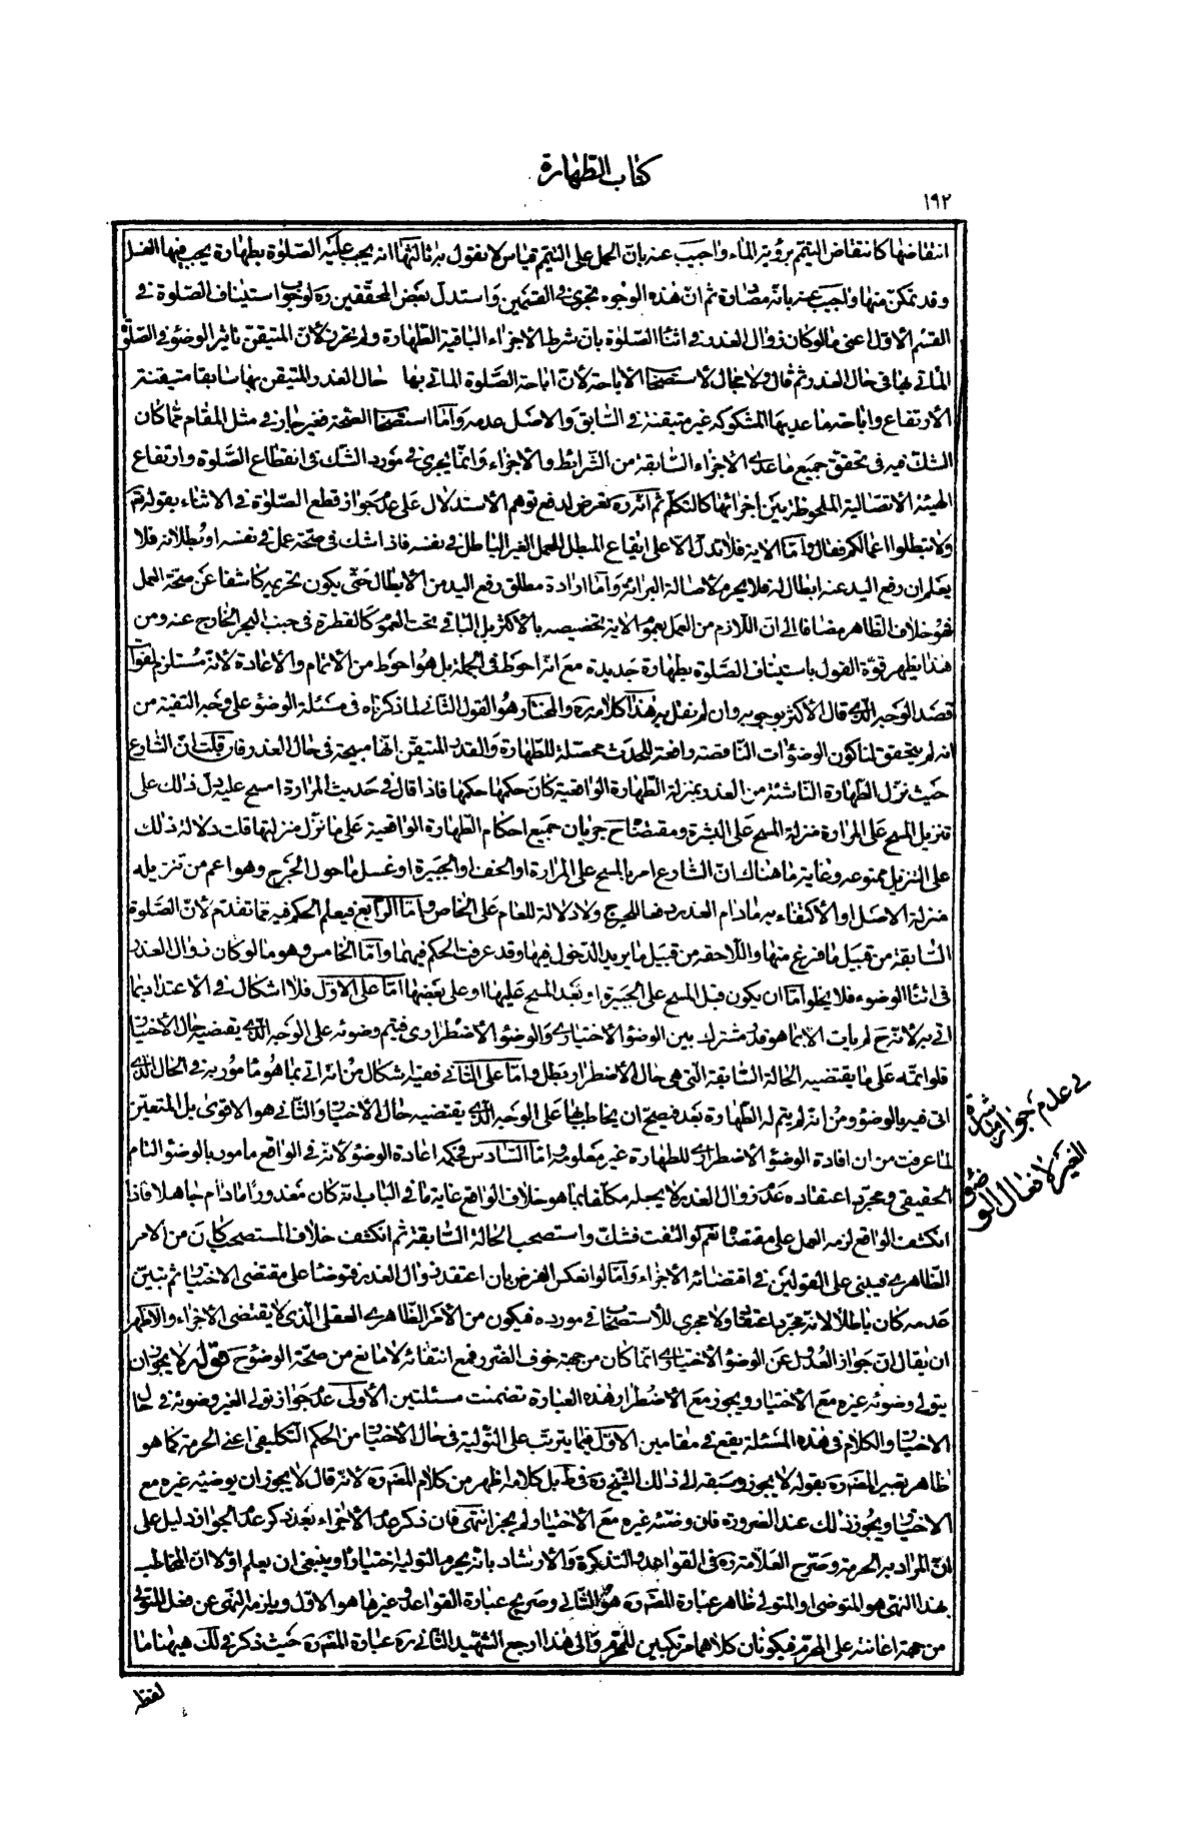 كتاب الطهارة
١٩٢
انتقاضها كانتقاض التيمم برؤية الماء واجيب عنه بان الحمل على التيمم قياس لا نقول به ثالثها انه يجب عليه الصلوة بطهارة يجب فيها الغسل
وقد تمكن منها واجيب عنه بانه مصادرة ثم ان هذه الوجوه تجرى فى القسمين واستدل بعض المحققين ره لوجوب استيناف الصلوة فى
القسم الاول اعنى ما لو كان زوال العذر فى اثناء الصلوة بان شرط الاجزاء الباقية الطهارة ولم يحرز لان المتيقن تاثير الوضوء فى الصلوة
الماتى بها فى حال العذر ثم قال ولا مجال لاستصحاب الاباحة لان اباحة الصلوة الماتى بها حال العذر المتيقن بها سابقا متيقنة
الارتفاع واباحة ما عديها المشكوكة غير متيقنة فى السابق والاصل عدمه واما استصحاب الصحة فغير جار فى مثل المقام مما كان
الشك فيه فى تحقق جميع ما عدى الاجزاء السابقة من الشرايط والاجزاء وانما يجرى فى مورد الشك فى انقطاع الصلوة وارتفاع
الهيئة الاتصالية الملحوظة بين اجزائها كالتكلم ثم انه ره تعرض لدفع توهم الاستدلال على عدم جواز قطع الصلوة فى الاثناء بقوله تعالى
ولا تبطلوا اعمالكم فقال واما الاية فلا تدل الا على ايقاع المبطل للعمل الغير الباطل فى نفسه فاذا شك فى صحة عمل فى نفسه او بطلانه فلا
يعلم ان رفع اليد عنه ابطال له فلا يحرم لاصالة البرائة واما ارادة مطلق رفع اليد من الابطال حتى يكون تحريمه كاشفا عن صحة العمل
فهو خلاف الظاهر مضافا الى ان اللازم من العمل بعموم الاية تخصيصه بالاكثر بل الباقى تحت العموم كالقطرة فى جنب البحر الخارج عنه ومن
هذا يظهر قوة القول باستيناف الصلوة بطهارة جديدة مع انه احوط فى الجملة بل هو احوط من الاتمام والاعادة لانه مستلزم لفوات
قصد الوجه الذى قال الاكثر بوجوبه وان لم نقل به هذا كلامه ره والمختار هو القول الثانى لما ذكرناه فى مسئلة الوضوء على وجه التقية من
انه لم يتحقق لنا كون الوضوءات الناقصة رافعة للحدث محصلة للطهارة والقدر المتيقن انها مبيحة فى حال العذر فان قلت ان الشارع
حيث نزل الطهارة الناشئة من العذر بمنزلة الطهارة الواقعية كان حكمها حكمها فاذا قال فى حديث المرارة امسح عليه دل ذلك على
تنزيل المسح على المرارة منزلة المسح على البشرة ومقتضاه جريان جميع احكام الطهارة الواقعية على ما نزل منزلتها قلت دلالة ذلك
على التنزيل ممنوعه وغاية ما هناك ان الشارع امر بالمسح على المرارة او الخف او الجبيرة او غسل ما حول الجرح وهو اعم من تنزيله
منزلة الاصل او الاكتفاء به ما دام العذر دفعا للحرج ولا دلالة للعام على الخاص واما الرابع فيعلم الحكم فيه مما تقدم لان الصلوة
السابقة من قبيل ما فرغ منها واللاحقه من قبيل ما يريد الدخول فيها وقد عرفت الحكم فيهما واما الخامس وهو ما لو كان زوال العذر
فى اثناء الوضوء فلا يخلو اما ان يكون قبل المسح على الجبيرة او بعد المسح عليها او على بعضها اما على الاول فلا اشكال فى الاعتداد بما
اتى به لانه ح لم يات الا بما هو قدر مشترك بين الوضوء الاختيارى والوضوء الاضطرارى فيتم وضوئه على الوجه الذى يقتضيه حال الاختيار
فلو اتمه على ما يقتضيه الحالة السابقة التى هى حال الاضطرار بطل واما على الثانى ففيه اشكال من انه اتى بما هو مامور به فى الحال الذى
اتى فيه بالوضوء ومن انه لم يتم له الطهارة بعد فيصح ان يخاطب بها على الوجه الذى يقتضيه حال الاختيار والثانى هو الاقوى بل المتعين
لما عرفت من ان افادة الوضوء الاضطرارى للطهارة غير معلومة واما السادس فحكمه اعادة الوضوء لانه فى الواقع مامور بالوضوء التام
الحقيقى ومجرد اعتقاده عدم زوال العذر لا يجعله مكلفا بما هو خلاف الواقع غاية ما فى الباب انه كان معذورا ما دام جاهلا فاذا
انكشف الواقع لزمه العمل على مقتضاه نعم لو التفت فشك واستصحب الحالة السابقة ثم انكشف خلاف المستصحب كان من الامر
الظاهرى فيبنى على القولين فى اقتضائه الاجزاء واما لو انعكس الفرض بان اعتقد زوال العذر فتوضا على مقتضى الاختيار ثم تبين
عدمه كان باطلا لانه مجرد اعتقاد ولا مجرى للاستصحاب فى مورده فيكون من الامر الظاهرى العقلى الذى لا يقتضى الاجزاء والاظهر
ان يقال ان جواز العدول عن الوضوء الاختيارى انما كان من جهة خوف الضرر فمع انتفائه لا مانع من صحة الوضوء ح قوله لا يجوز ان
يتولى وضوئه غيره مع الاختيار ويجوز مع الاضطرار هذه العبارة تضمنت مسئلتين الاولى عدم جواز تولى الغير وضوئه فى حال
الاختيار والكلام فى هذه المسئلة يقع فى مقامين الاول فيما يترتب على التولية فى حال الاختيار من الحكم التكليفى اعنى الحرمة كما هو
ظاهر تعبير المصنف ره بقوله لا يجوز وسبقه الى ذلك الشيخ ره فى ط بل كلامه اظهر من كلام المصنف ره لانه قال لا يجوز ان يوضيه غيره مع
الاختيار ويجوز ذلك عند الضرورة فان وضئه غيره مع الاختيار لم يجز انتهى فان ذكر عدم الاجزاء بعد ذكر عدم الجواز دليل على
ان المراد به الحرمة وصرح العلامة ره فى القواعد والتذكرة والارشاد بانه يحرم التولية اختيارا وينبغى ان يعلم اولا ان المخاطب
بهذا النهى هو المتوضى او المتولى ظاهر عبارة المصنف ره هو الثانى وصريح عبارة القواعد وغيرها هو الاول ويلزمه النهى عن فعل المتولى
من جهة اعانته على المحرم فيكونان كلاهما مرتكبين للمحرم والى هذا ارجع الشهيد الثانى ره عبارة المصنف ره حيث ذكر فى لك هيهنا ما
فى عدم جواز مباشرة
الغير لافعال الوضوء
لفظه